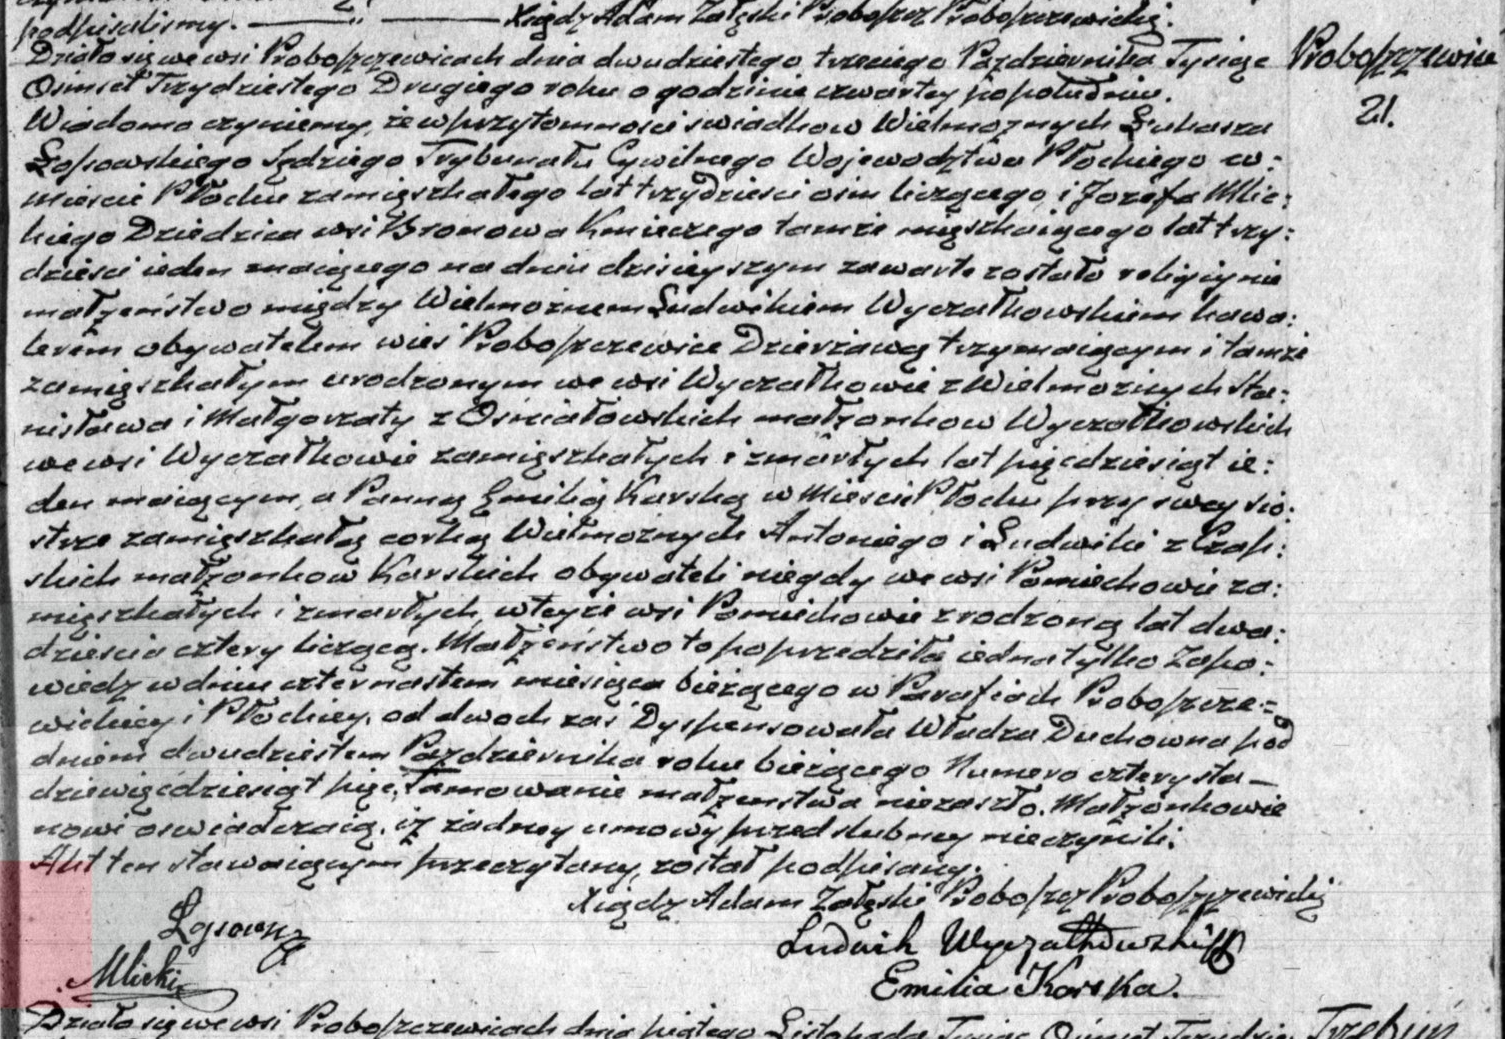 podpisaliśmy. Xiądz Adam Załęski Proboszcz Proboszczewicki.
Działo się we wsi Proboszczewicach dnia dwudziestego trzeciego Pazdziernika Tysiąc
Proboszczewice
Ośmset Trzydziestego Drugiego roku o godzinie czwartey po południu.
21.
Wiadomo czyniemy, że w przytomności swiadkow Wielmoznych Łukasza
Sędziego Trybunału Cywilnego Wojewodztwa Płockiego w
mieście Płocku zamięszkałego lat trzydzieści ośm liczącego i Jozefa Mlic:
kiego Dziedzica wsi Bronowa Kmiecego tamże mięszkaiącego lat trzy:
dzieści ieden maiącego na dniu dzisieyszym zawarte zostało religiynie
małżeństwo między Wielmożnem Ludwikiem Wyczałkowskiem kawa:
lerem obywatelem wieś Proboszczewice Dzierzawą trzymaiącym i tamże
zamięszkałym urodzonym we wsi Wyczałkowie z Wielmożnych Sta:
nisława i Małgorzaty z Ośniałowskich małżonkow Wyczałkowskich
we wsi Wyczałkowie zamięszkałych i zmarłych lat pięćdziesiąt ie:
den maiącym, a Panną Emilią Karską w Mieście Płocku przy swey sio:
strze zamięszkałą corką Wielmożnych Antoniego i Ludwiki z Czap:
skich małżonkow Karskich obywateli niegdy we wsi Pomiechowie za:
mięszkałych i zmarłych, w teyże wsi Pomiechowie zrodzoną lat dwa:
dzieścia cztery liczącą. Małżeństwo to poprzedziła iedna tylko Zapo:
wiedz w dniu czternastem miesiąca bieżącego w Parafiach Proboszcze:
wickiey i Płockiey, od dwoch zaś Dyspensowała Władza Duchowna pod
dniem dwudziestem Pazdziernika roku bieżącego Numero czterysta
dziewięćdziesiąt pięć, Tamowanie małżenstwa niezaszło. Małżonkowie
nowi oświadczaią, iż żadney umowy przedslubney nieczynili.
Akt ten stawaiącym przeczytany, został podpisany.
Xiądz Adam Załęski Proboszcz Proboszczewicki
Ludwik Wyczałkowski
Mlicki
Emilia Karska.
Działo się we wsi Proboszczewicach dnia piątego Listopada Tysiąc Ośmset Trzydzie